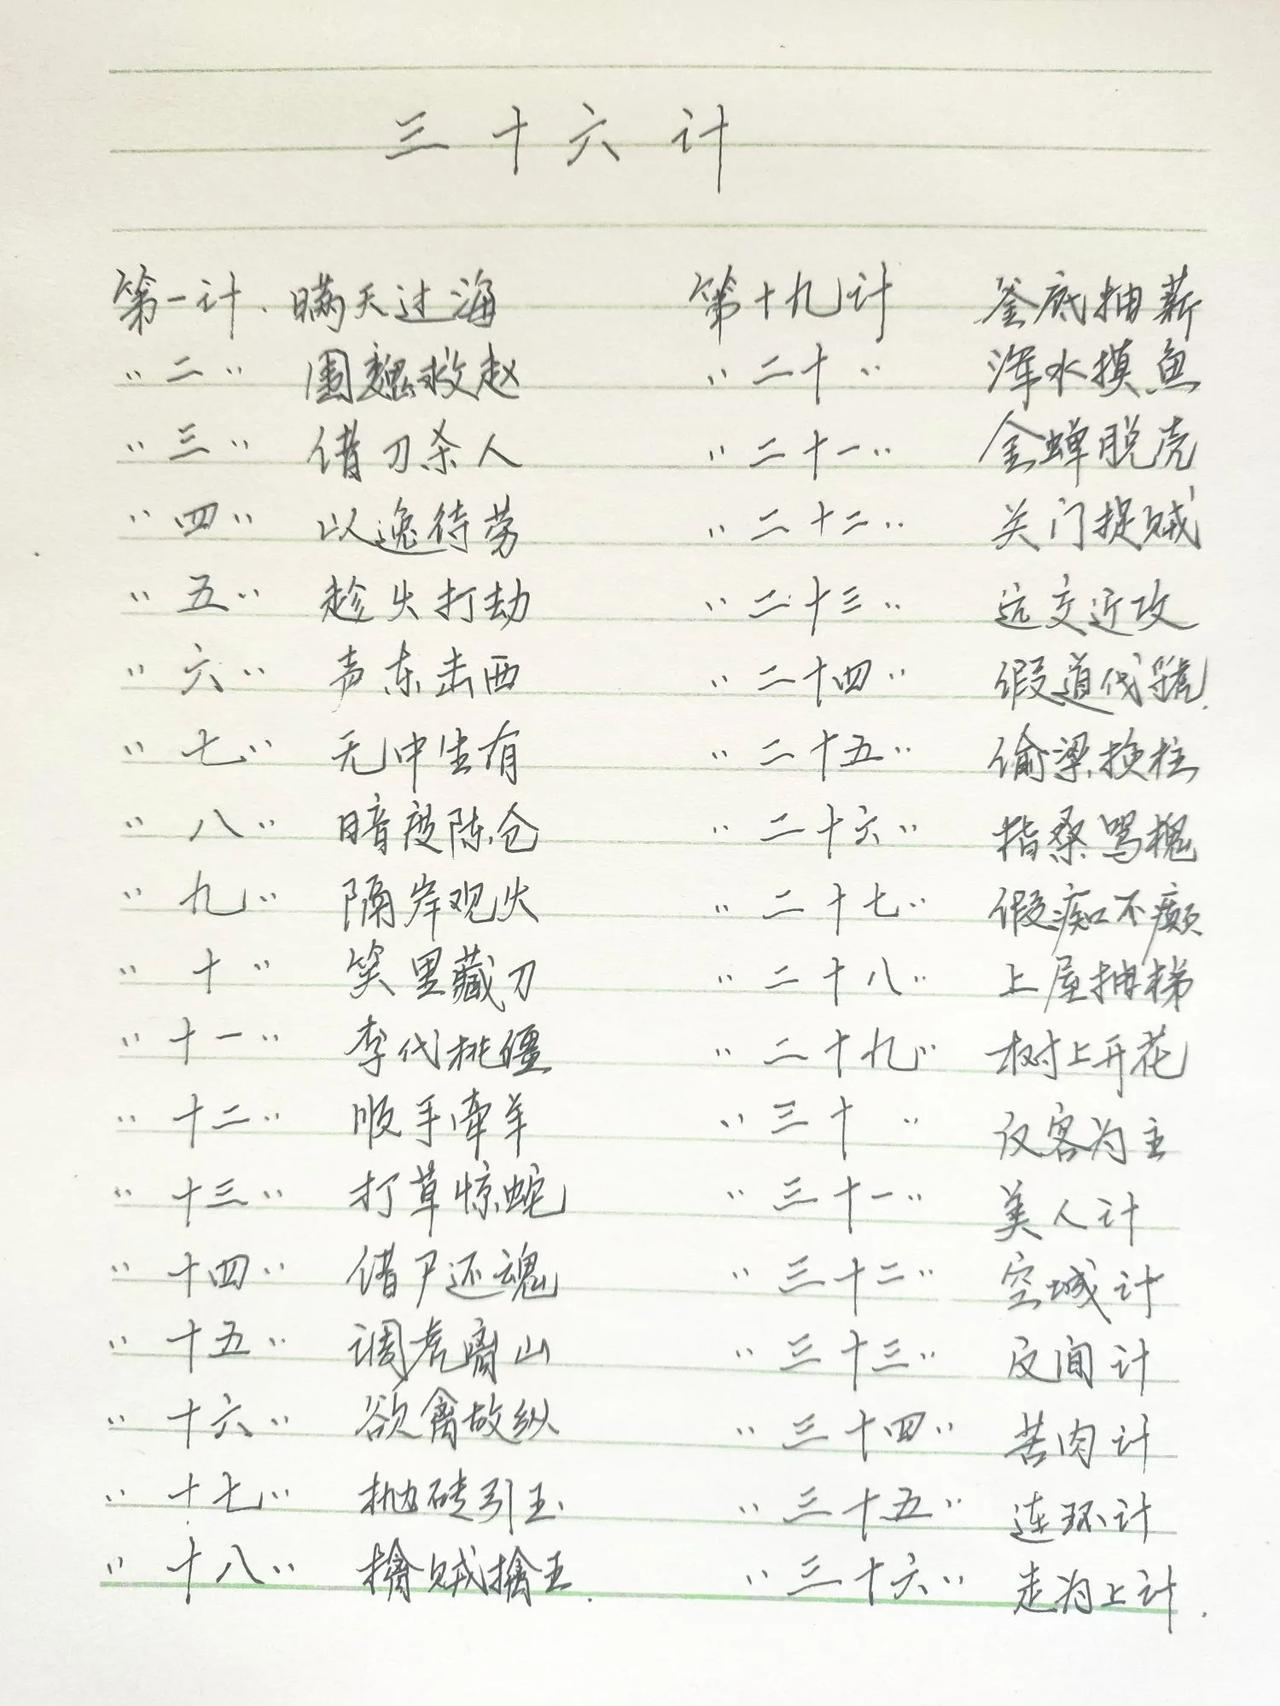 三十六计
第一计. 瞒天过海
〃二〃 围魏救赵
〃三〃 借刀杀人
〃四〃 以逸待劳
〃五〃 趁火打劫
〃六〃 声东击西
〃七〃 无中生有
〃八〃 暗度陈仓
〃九〃 隔岸观火
〃十〃 笑里藏刀
〃十一〃 李代桃僵
〃十二〃 顺手牵羊
〃十三〃 打草惊蛇
〃十四〃 借尸还魂
〃十五〃 调虎离山
〃十六〃 欲擒故纵
〃十七〃 抛砖引玉.
〃十八〃 擒贼擒王.
第十九计 釜底抽薪
〃二十〃 浑水摸鱼
〃二十一〃 金蝉脱壳
〃二十二〃 关门捉贼
〃二十三〃 远交近攻
〃二十四〃 假道伐虢.
〃二十五〃 偷梁换柱
〃二十六〃 指桑骂槐
〃二十七〃 假痴不癫
〃二十八〃 上屋抽梯
〃二十九〃 树上开花
〃三十〃 反客为主
〃三十一〃 美人计
〃三十二〃 空城计
〃三十三〃 反间计
〃三十四〃 苦肉计
〃三十五〃 连环计
〃三十六〃 走为上计.